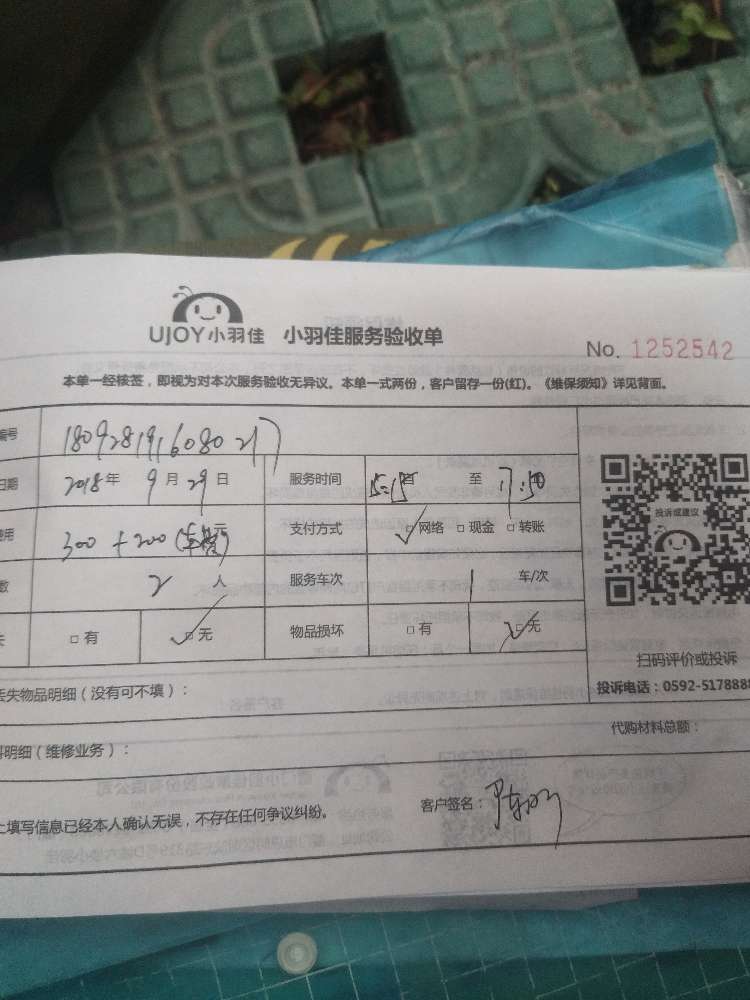 UJOY小羽佳 小羽佳服务验收单
No. 1252542
本单一经核签，即视为对本次服务验收无异议。本单一式两份，客户留存一份(红)。《维保须知》详见背面。
编号
日期 2018年 9月29日 服务时间 15:15 至 17:50
费用 300+200 元 支付方式 ☑网络 □现金 □转账
数 2人 服务车次 1 车/次
失 □有 ☑无 物品损坏 □有 ☑无
投诉或建议
扫码评价或投诉
投诉电话：0592-5178888
丢失物品明细（没有可不填）：
代购材料总额：
料明细（维修业务）：
上填写信息已经本人确认无误，不存在任何争议纠纷。
客户签名：